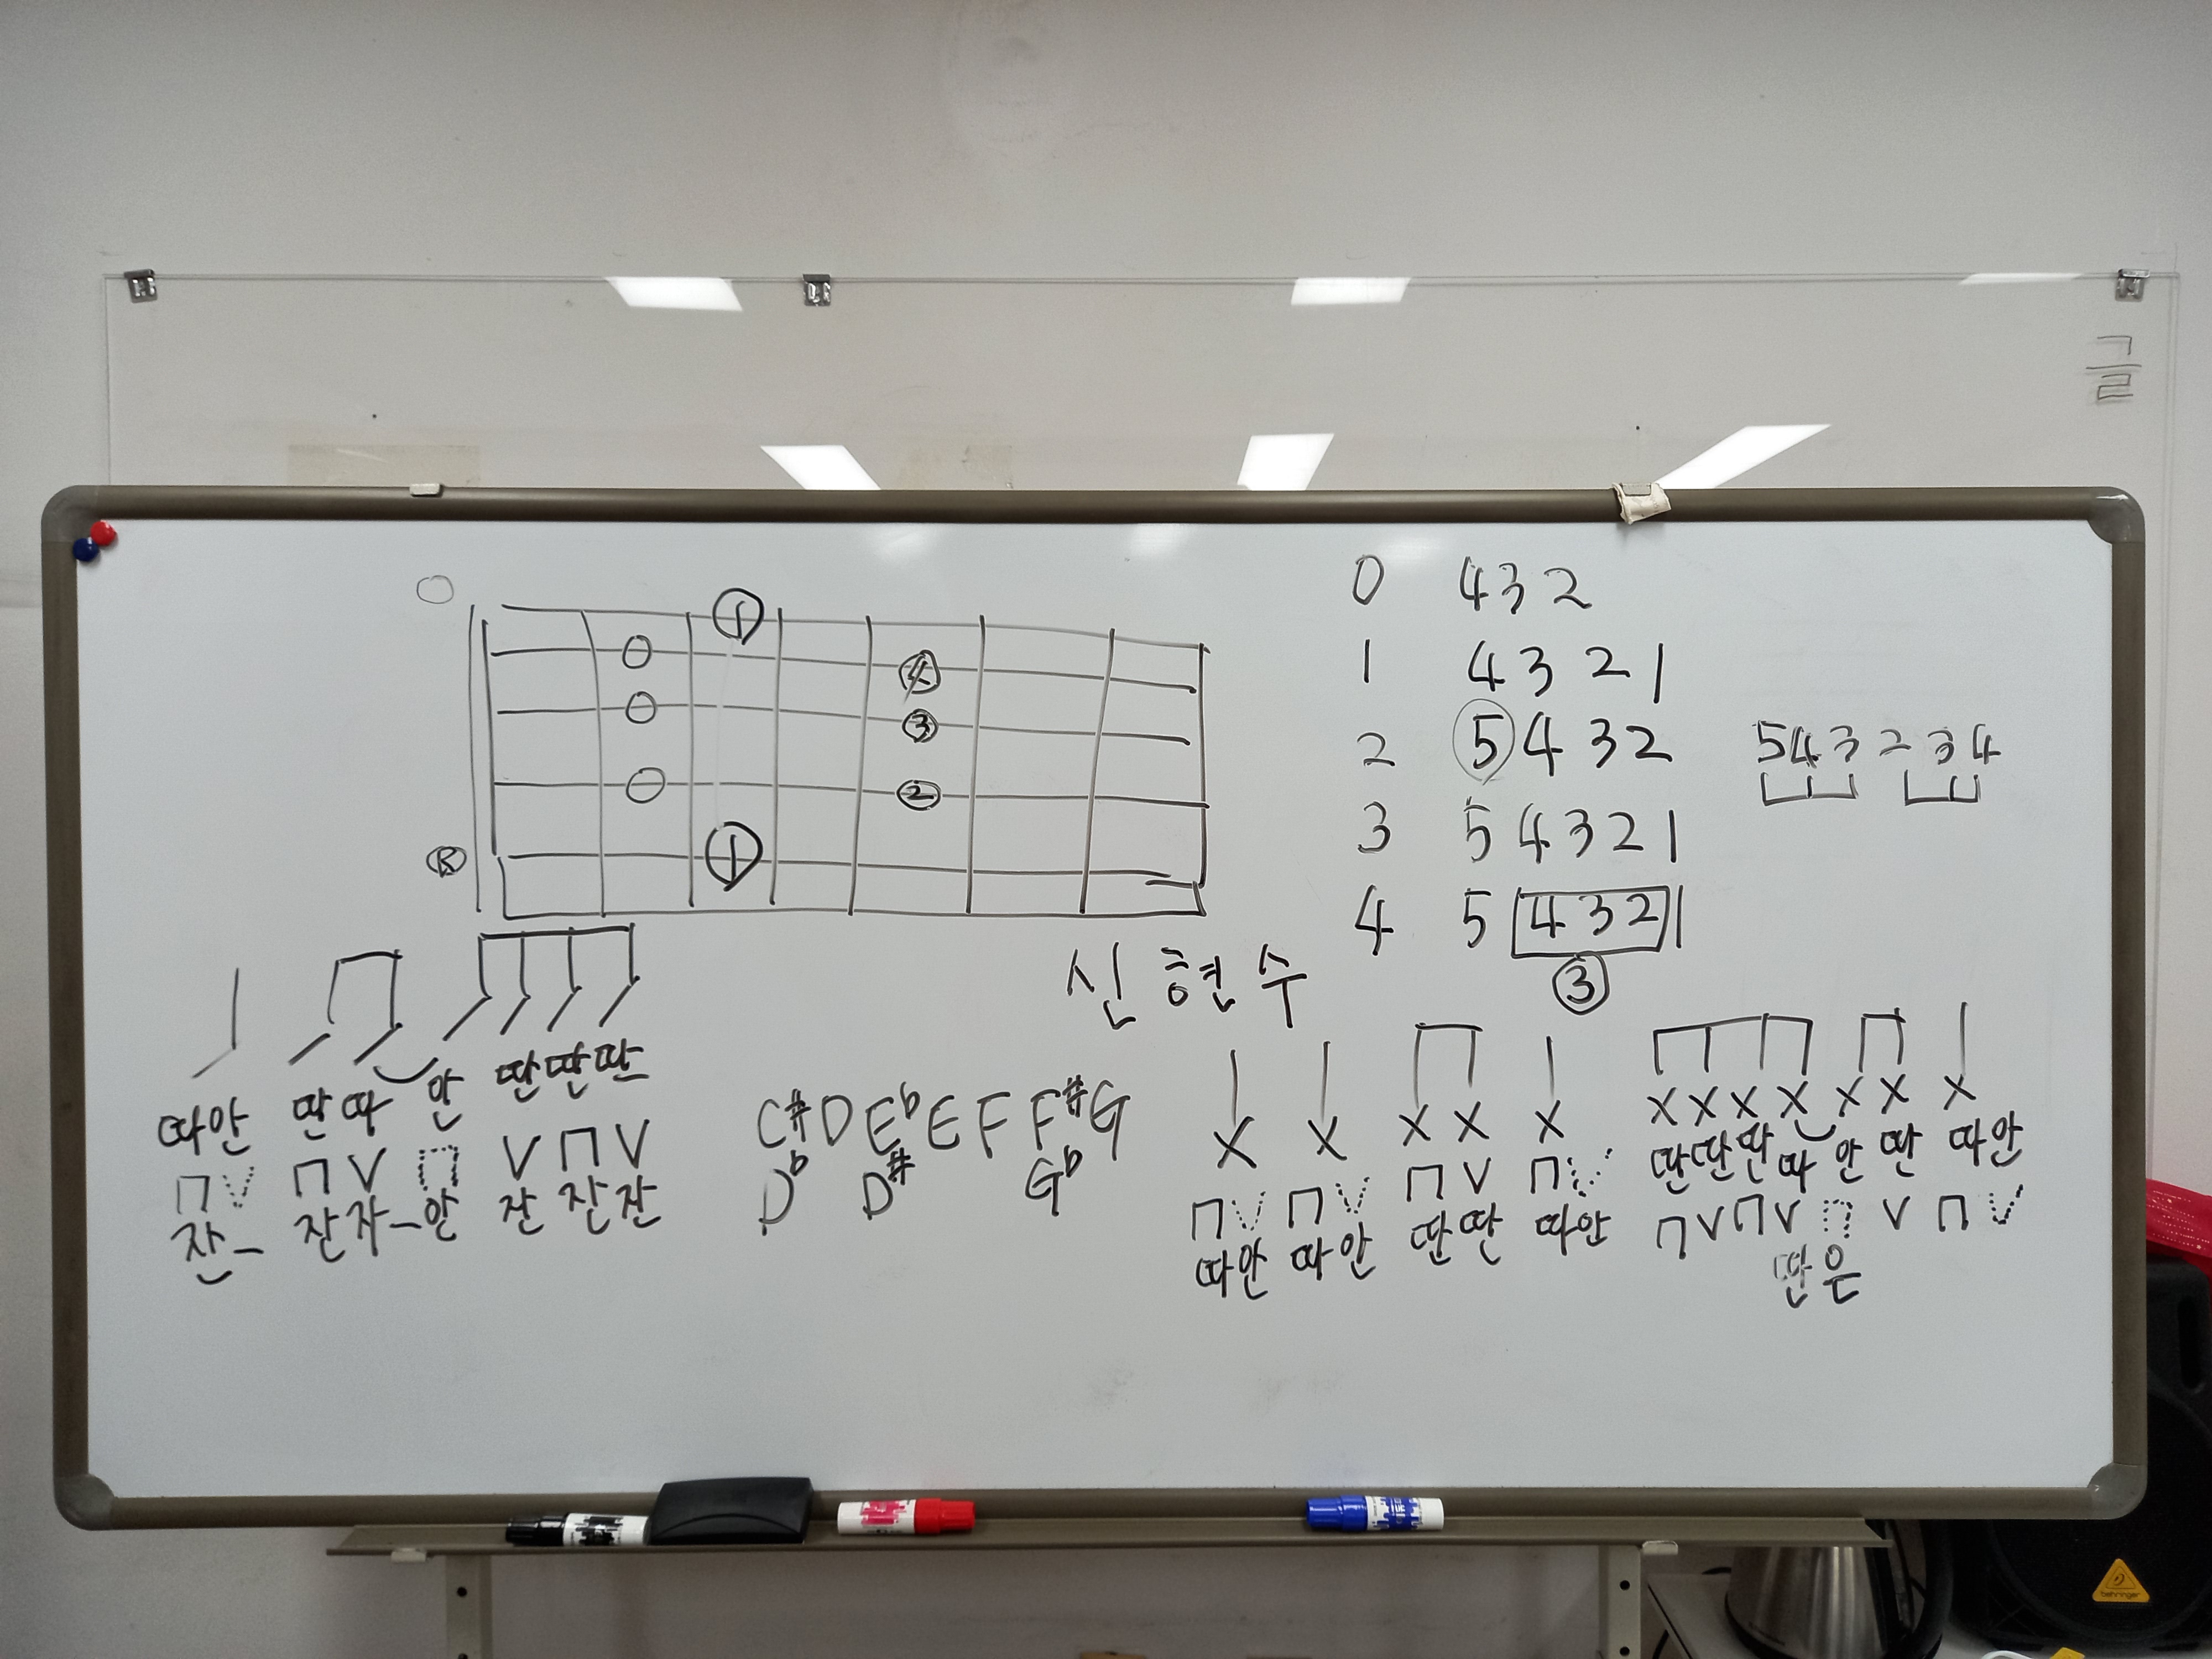 글
1
4
3
2
R
1
0 432
1 4321
2 5432
543234
3 54321
4 54321
③
신현수
따안 딴따안 딴딴딴
ㄇV ㄇVㄇ VㄇV
잔_ 잔자_안 잔잔잔
C# D E♭ E F F# G
D♭ D# G♭
X X X X X
ㄇV ㄇV ㄇV ㄇV
따안 따안 딴딴 따안
X X X X X X X
딴딴딴따안딴 따안
ㄇVㄇVㄇV ㄇV
딴은
behringer